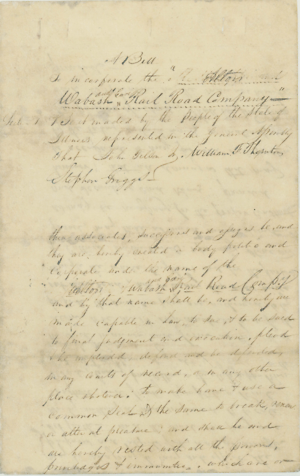 A Bill
To incorporate the "The Alton
Wabash and Erie Rail Road Company"
Sec. 1. Be it enacted by the People of the State of
Illinois represented in the General Assembly
That John Green William F. Thornton
Stephen Griggs
their associates, successors and assigns be and
they are hereby created a body politic and
Corporate under the name of the
"Alton Wabash & Erie Rail Road Company"
and by that name shall be, and hereby are
made capable in law to sue & to be sued
to final judgment and execution, plead
and be impleaded, defend and be defended
in any courts of record, or in any other
place whatever: to make have & use a
Common Seal & the same to break, renew
or alter at pleasure and shall be and
are hereby vested with all the powers,
privileges & immunities, which are or